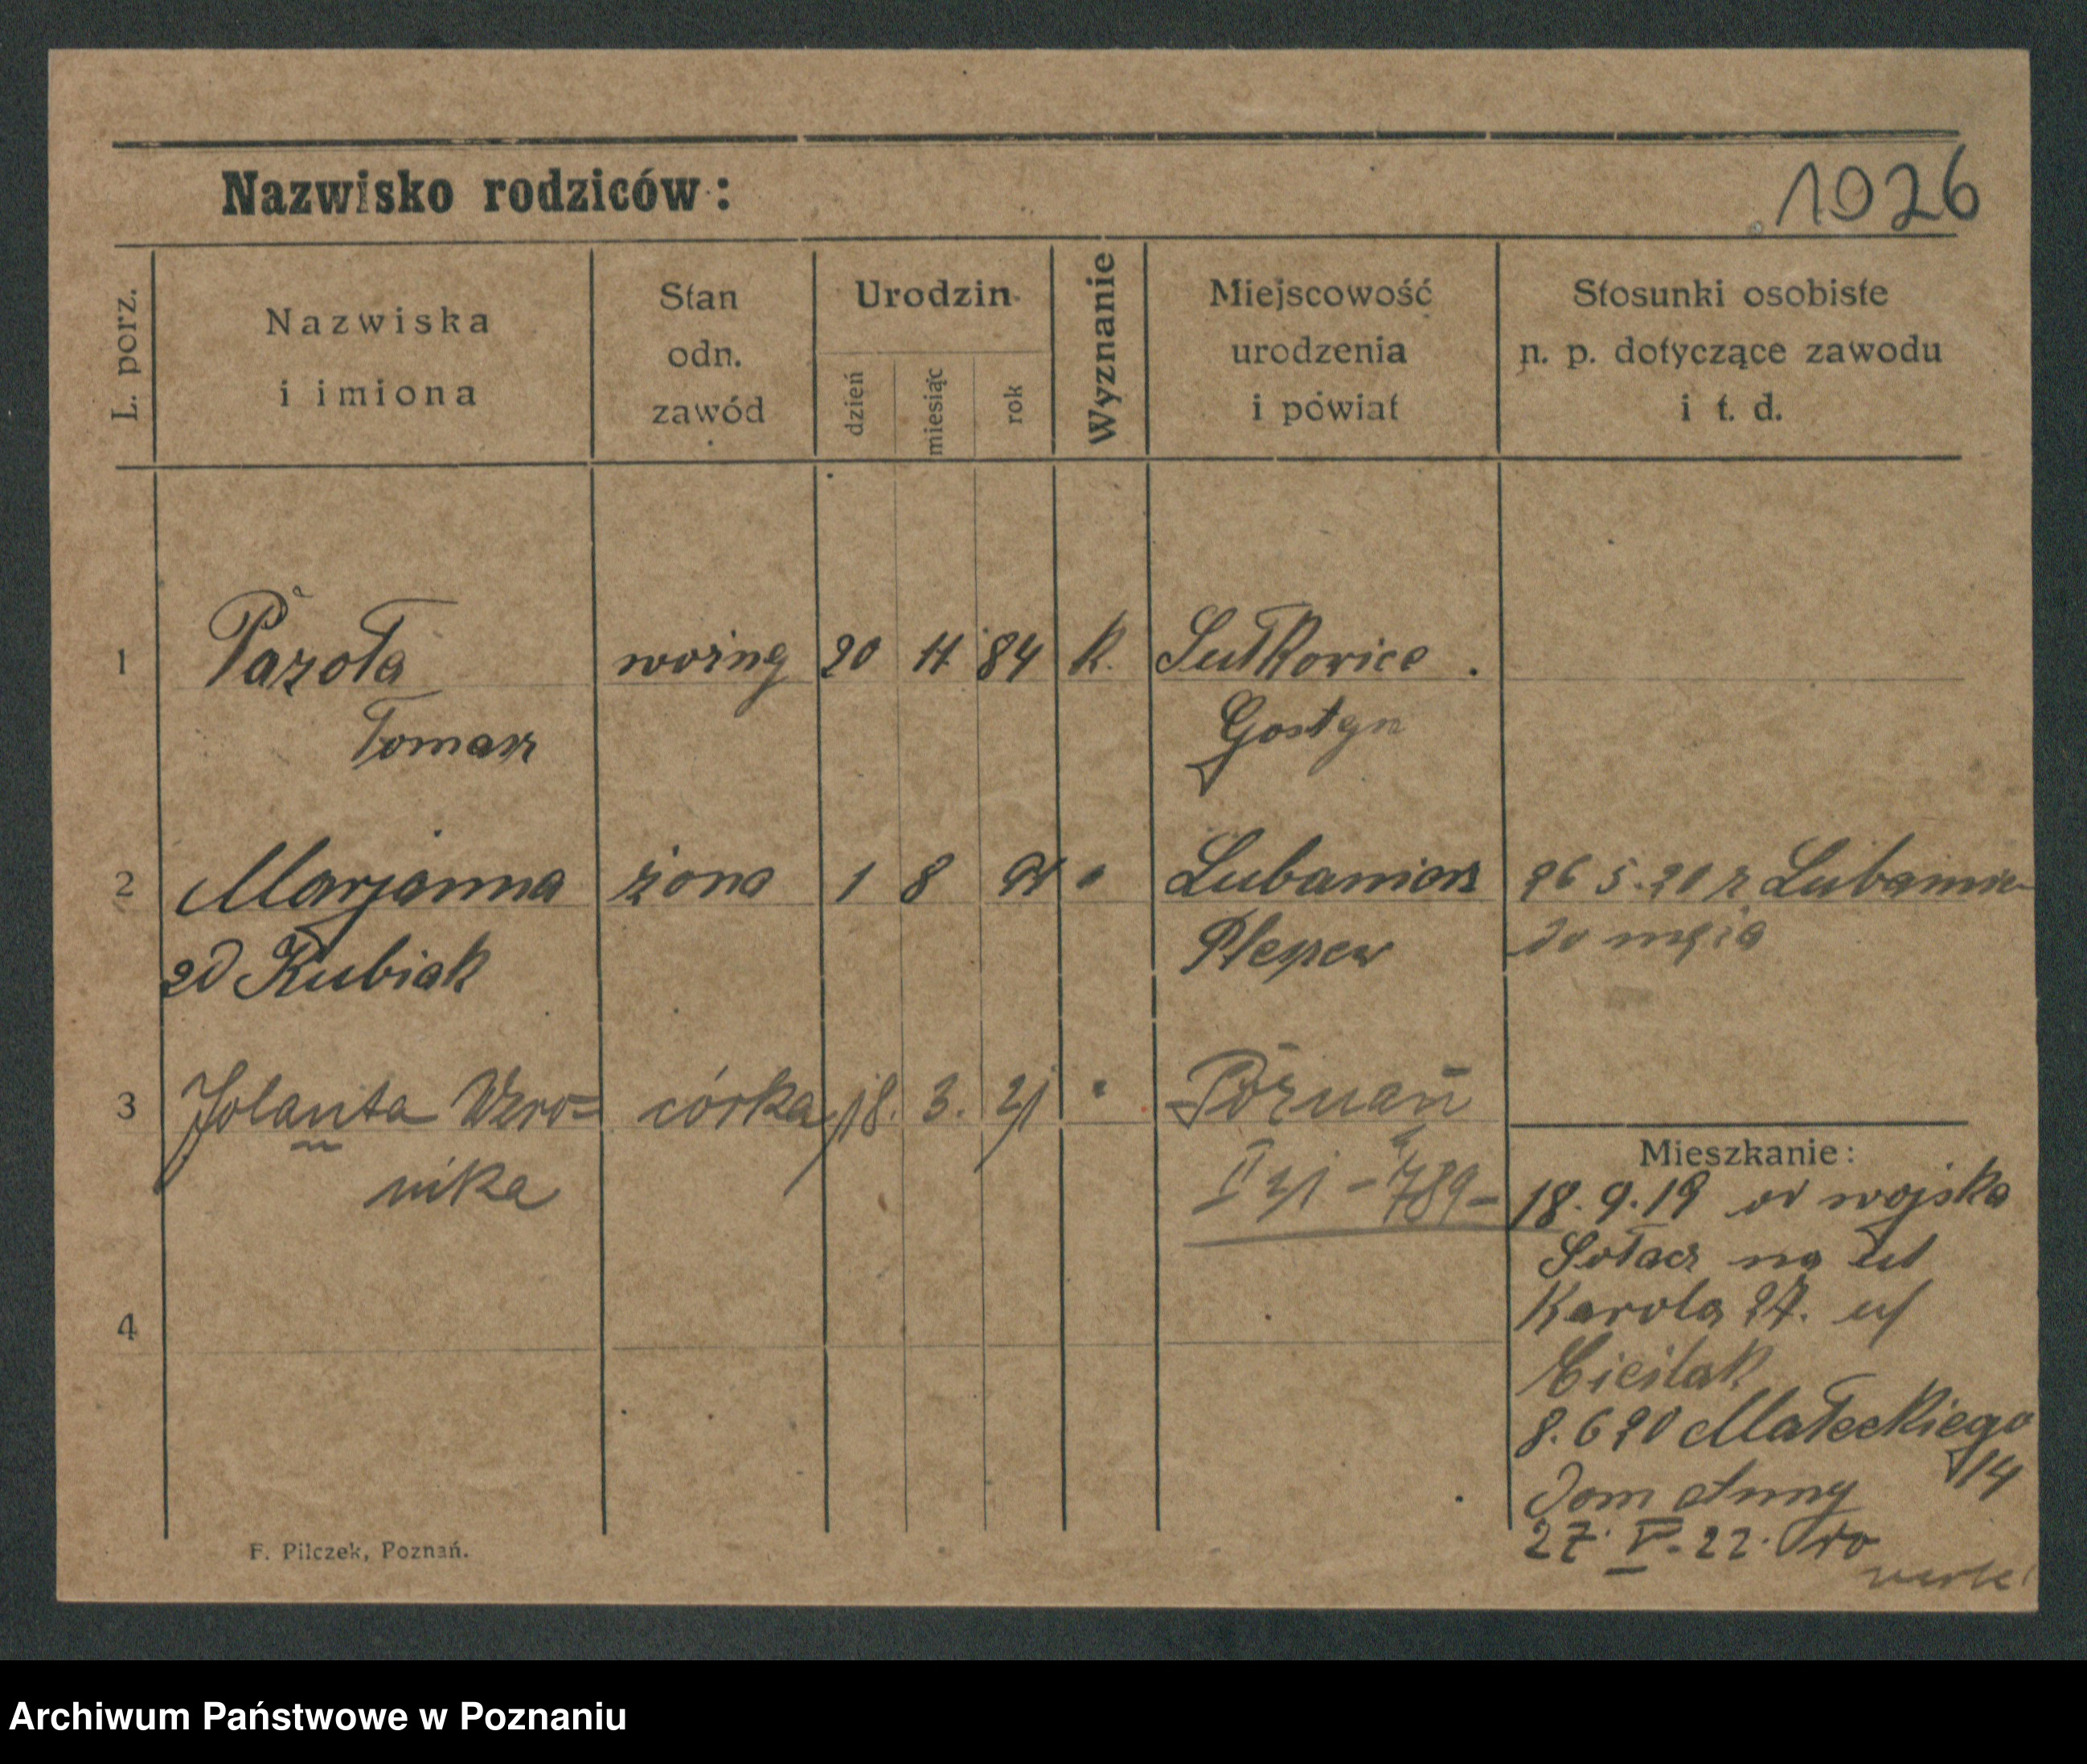 Nazwisko rodziców:
1926
L. porz.
Nazwiska
i imiona
Stan
odn.
zawód
Urodzin
dzień
miesiąc
rok
Wyznanie
Miejscowość
urodzenia
i powiat
Stosunki osobiste
n. p. dotyczące zawodu
i t. d.
1 Pazoła woźny 20 11 84 k. Sułkowice
Tomasz Gostyn
2 Marjanna żona 1 8 Lubaniors 26 5.20 z
Kubiak Pleszew do męża
3 Jolanta Wero= córka 18. 3. 21 Poznań
nika II 21 - 789 -
4
Mieszkanie:
18.9.19 od wojska
Sołacz na ul
Karola 27. u/
Cieślak
8.6 20 Małeckiego
14
Dom Anny
27. V. 22. do
F. Pilczek, Poznań.
Archiwum Państwowe w Poznaniu